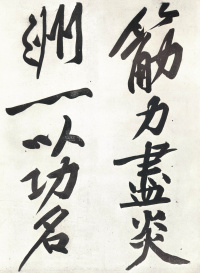 筋力盡炎
洲一以功名